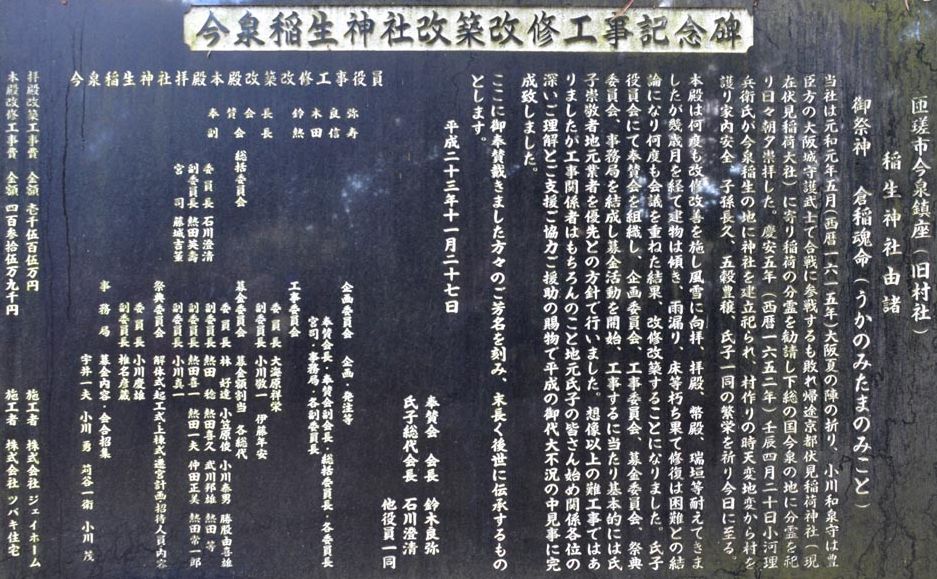 今泉稲生神社改築改修工事記念碑
匝瑳市今泉鎮座(旧村社)
稲生神社由諸
御祭神 倉稲魂命(うかのみたまのみこと)
当社は元和元年五月(西暦一六一五年)大阪夏の陣の祈り、小川和泉守は豊
臣方の大阪城守護武士て合戦に参戦するも敗れ帰途京都伏見稲荷神社(現
在伏見稲荷大社)に寄り稲荷の分霊を勧請し下総の国今泉の地に分霊を祀
り日々朝夕崇拝した。慶安五年(西暦一六五二年)壬辰四月二十日小河理
兵衛氏が今泉稲生の地に神社を建立祀られ、村作りの時天変地変から村を
護り家内安全 子孫長久、五穀豊穣、氏子一同の繁栄を祈り今日に至る。
本殿は何度も改修改善を施し風雪に向拝 拝殿 幣殿、瑞垣等耐えてきま
したが幾歳月を経て建物は傾き、雨漏り、床等朽ち果て修復は困難との結
論になり何度も会議を重ねた結果 改修改築することになりました。氏子
役員会にて奉賛会を組織し、企画委員会、工事委員会、募金委員会、祭典
委員会、事務局を結成し募金活動を開始、工事するに当たり基本的には氏
子崇敬者地元業者を優先との方針で行いました。想像以上の難工事ではあ
りましたが工事関係者はもちろんのこと地元氏子の皆さん始め関係各位の
深いご理解とご支援ご協力ご援助の賜物で平成の御代大不況の中見事に完
成致しました。
ここに御奉賛戴きました方々のご芳名を刻み、末長く後世に伝承するもの
とします。
平成二十三年十一月二十七日
奉賛会 会長 鈴木良弥
氏子総代会長 石川澄清
他役員一同
今泉稲生神社拝殿本殿改築改修工事役員
奉賛会会長 鈴木良弥
副会長 熱田信寿
総括委員会
委員長 石川澄清
副委員長 熱田英壽
宮司 藤城吉董
企画委員会 企画・発注等
奉賛会長・奉賛会副会長・総括委員長・各委員長
宮司・事務局・各副委員長
工事委員会
委員長 大海原祥栄
副委員長 小川敬一 伊藤年安
募金委員会 募金額割当 各総代
委員長 林好達 小笠原俊 小川泰男 勝股由喜雄
副委員長 熱田稔 熱田喜久 武川邦雄 熱田等
副委員長 熱田喜一 熱田一夫 仲田正美 熱田常一郎
副委員長 小川真一
祭典委員会 解体式・起工式・上棟式・遷宮計画・招待人員内容
委員長 小川慶雄
副委員長 椎名彦蔵
事務局 募金内容・会合招集
宇井一夫 小川勇 苅谷一衛 小川茂
拝殿改築工事費 金額 壱千伍百伍万円 施工者 株式会社 ジェイホーム
本殿改修工事費 金額 四百参拾伍万九千円 施工者 株式会社 ツバキ住宅